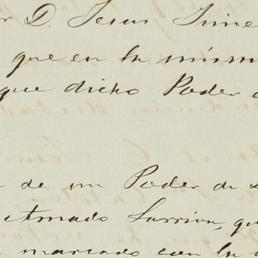 r D. Jesus Jime
que en la mism
que dicho Poder
de un Poder de
Amado Larrion, qu
marcado con la